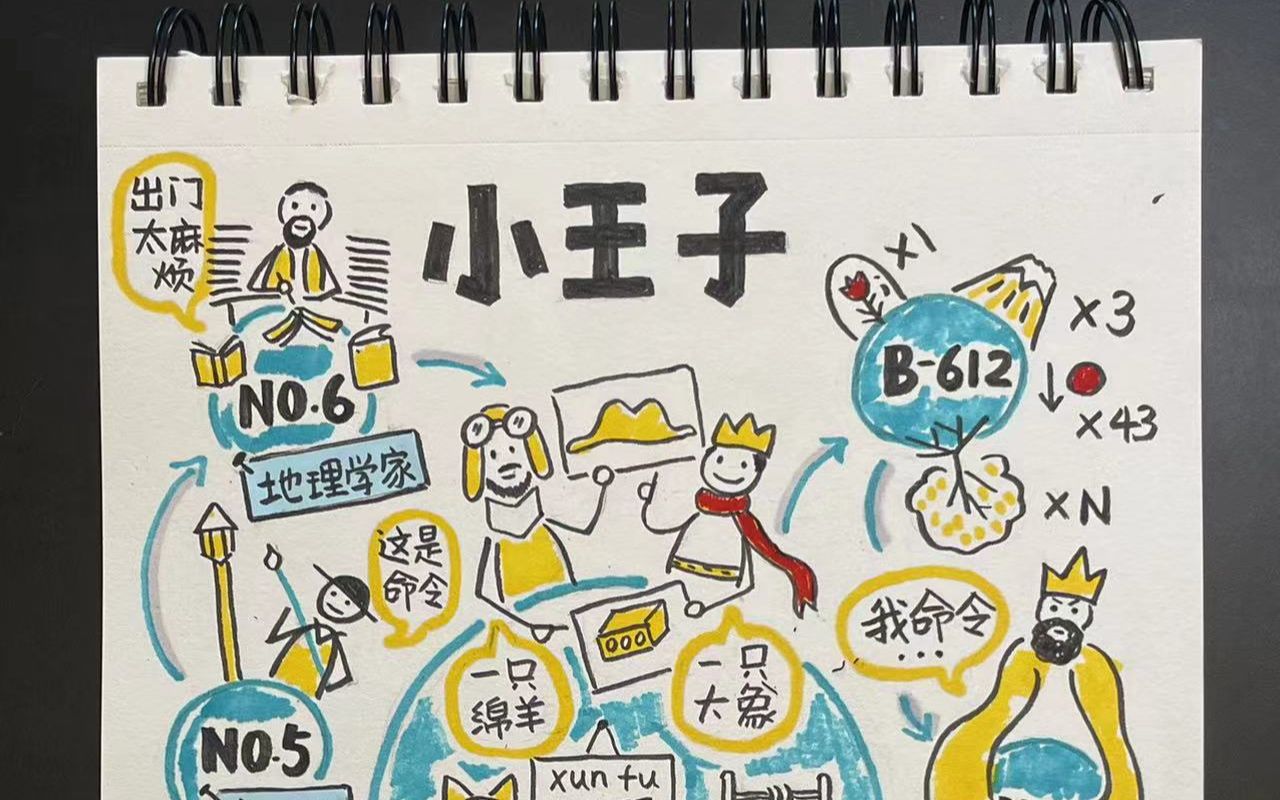 小王子
出门
太麻
烦
NO.6
地理学家
×1
B-612
×3
×43
×N
这是
命令
我命令
...
一只
绵羊
一只
大象
NO.5
xun fu